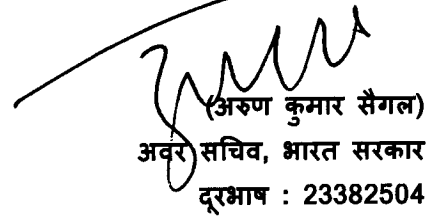 (अरुण कुमार सैगल)
अवर सचिव, भारत सरकार
दूरभाष : 23382504